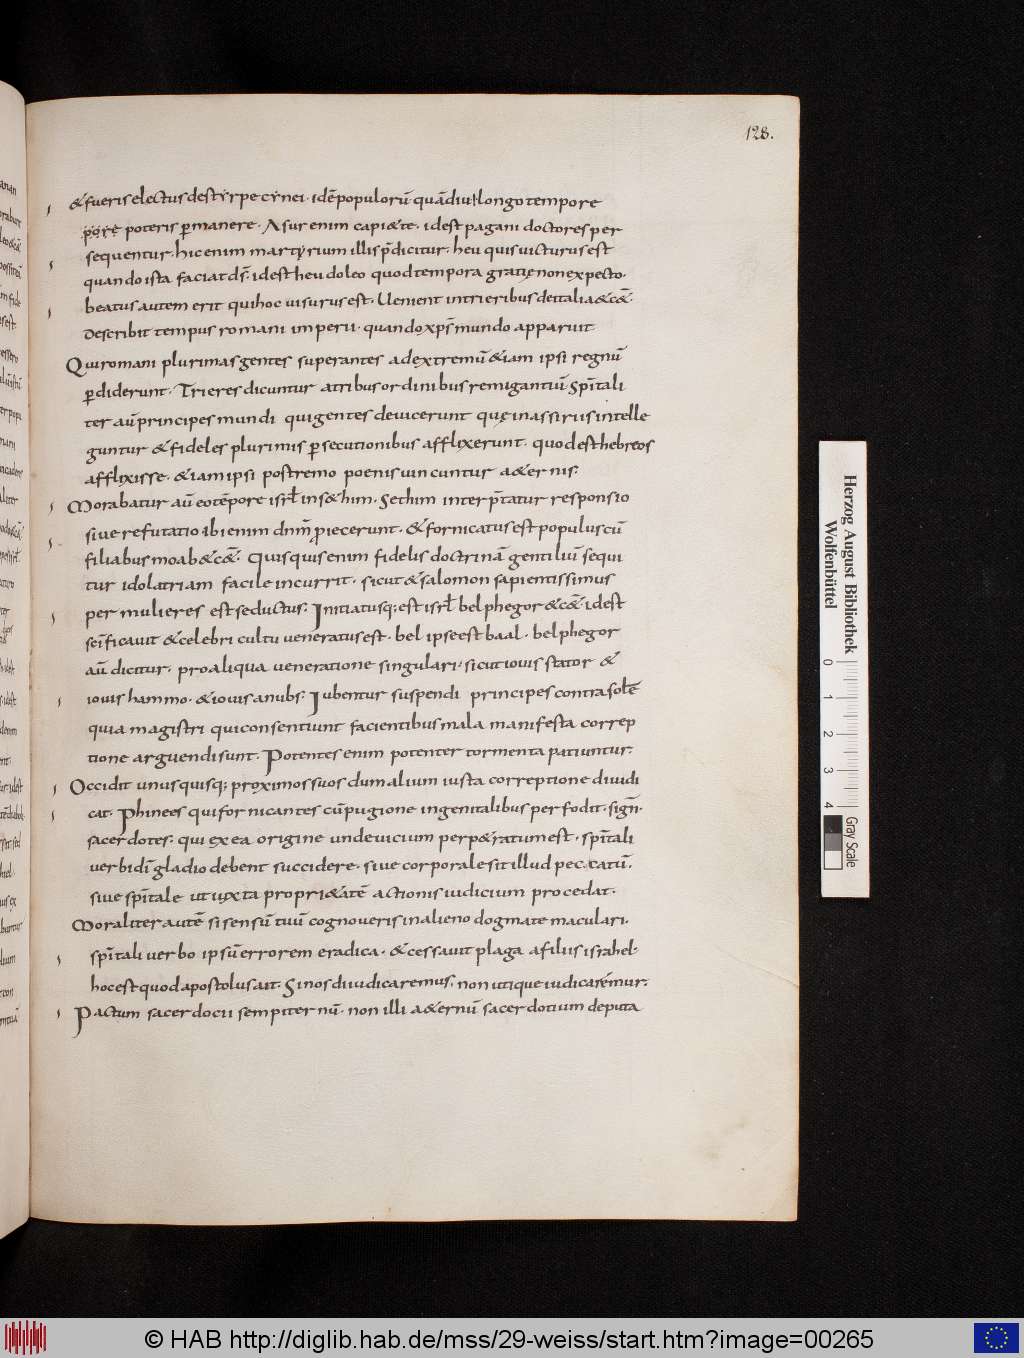 128.
&fueris electus destÿrpe cÿnei · idē populorū quādiu l longo tempore
pore poteris pmanere · Asur enim capi&te · id est pagani doctores per
sequentur · hic enim martÿrium illis p̄dicitur · heu quis uicturus est
quando ista faciat ds̄ · id est heu doleo quod tempora gratię non expecto ·
beatus autem erit qui hoc uisurus est · Uenient in trieribus de italia &cę̄ ·
Describit tempus romani imperii · quando xps̄ mundo apparuit
Qui romani plurimas gentes superantes ad extremū &iam ipsi regnū
pdiderunt · Trieres dicuntur a tribus ordinibus remigantiū Spīitali
ter aū principes mundi qui gentes deuicerunt quę in assiriis intelle
guntur & fideles plurimis psecutionibus afflixerunt · quod est hebreos
afflixisse · &iam ipsi postremo poenis uincuntur a&ernis:
Morabatur aū eo tēpore isrł in s&him · Sethim interp̄tatur responsio
siue refutatio ibi enim dnm̄ piecerunt · & fornicatus est populus cū
filiabus moab &cę̄ · Quisquis enim fidelis doctrinā gentiliū sequi
tur idolatriam facile incurrit · sicut & salomon sapientissimus
per mulieres est seductus: Initiatusq; est isrł belphegor &cę̄ · id est
sēificauit & celebri cultu ueneratus est · bel ipse est baal · belphegor
aū dicitur · pro aliqua ueneratione singulari · sicut iouis stator &
iouis hammo · & iouis anubs: Iubentur suspendi principes contra solē
quia magistri qui consentiunt facientibus mala manifesta correp
tione arguendi sunt · Potentes enim potenter tormenta patiuntur:
Occidit unusquisq; proximos suos dum alium iusta correptione diuidi
cat · Phinees qui fornicantes cū pugione in genitalibus perfodit · sign̄ ·
sacerdotes · qui ex ea origine unde uicium perp&ratum est · spīitali
uerbi dī gladio debent succidere · siue corporale sit illud peccatū ·
siue spīitale ut iuxta propri&atē actionis iudicium procedat ·
Moraliter autē si sensū tuū cognoueris in alieno dogmate maculari ·
spīitali uerbo ipsū errorem eradica · & cessauit plaga a filiis israhel ·
hoc est quod apostolus ait · Si nos diiudicaremus · non utique iudicaremur:
Pactum sacerdocii sempiternū · non illi a&ernū sacerdotium deputa
Herzog August Bibliothek
Wolfenbüttel
0 1 2 3 4
Gray Scale
© HAB http://diglib.hab.de/mss/29-weiss/start.htm?image=00265